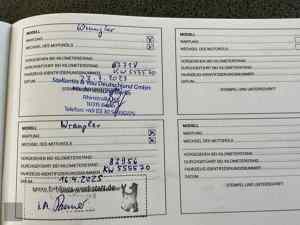 MODELL Wrangler
WARTUNG
WECHSEL DES MOTORÖLS
VORGESEHEN BEI KILOMETERSTAND
DURCHGEFÜHRT BEI KILOMETERSTAND
FAHRZEUG-IDENTIFIZIERUNGSNUMMER KW 555570
DATUM
Stellantis & You Deutschland GmbH
MODELL
WARTUNG
WECHSEL DES MOTORÖLS
VORGESEHEN BEI KILOMETERSTAND
DURCHGEFÜHRT BEI KILOMETERSTAND
FAHRZEUG-IDENTIFIZIERUNGSNUMMER
DATUM
STEMPEL UND UNTERSCHRIFT
MODELL Wrangler
WARTUNG
WECHSEL DES MOTORÖLS
VORGESEHEN BEI KILOMETERSTAND
DURCHGEFÜHRT BEI KILOMETERSTAND 82956
FAHRZEUG-IDENTIFIZIERUNGSNUMMER KW555570
DATUM 16.4.2025
i.A.
MODELL
WARTUNG
WECHSEL DES MOTORÖLS
VORGESEHEN BEI KILOMETERSTAND
DURCHGEFÜHRT BEI KILOMETERSTAND
FAHRZEUG-IDENTIFIZIERUNGSNUMMER
DATUM
STEMPEL UND UNTERSCHRIFT